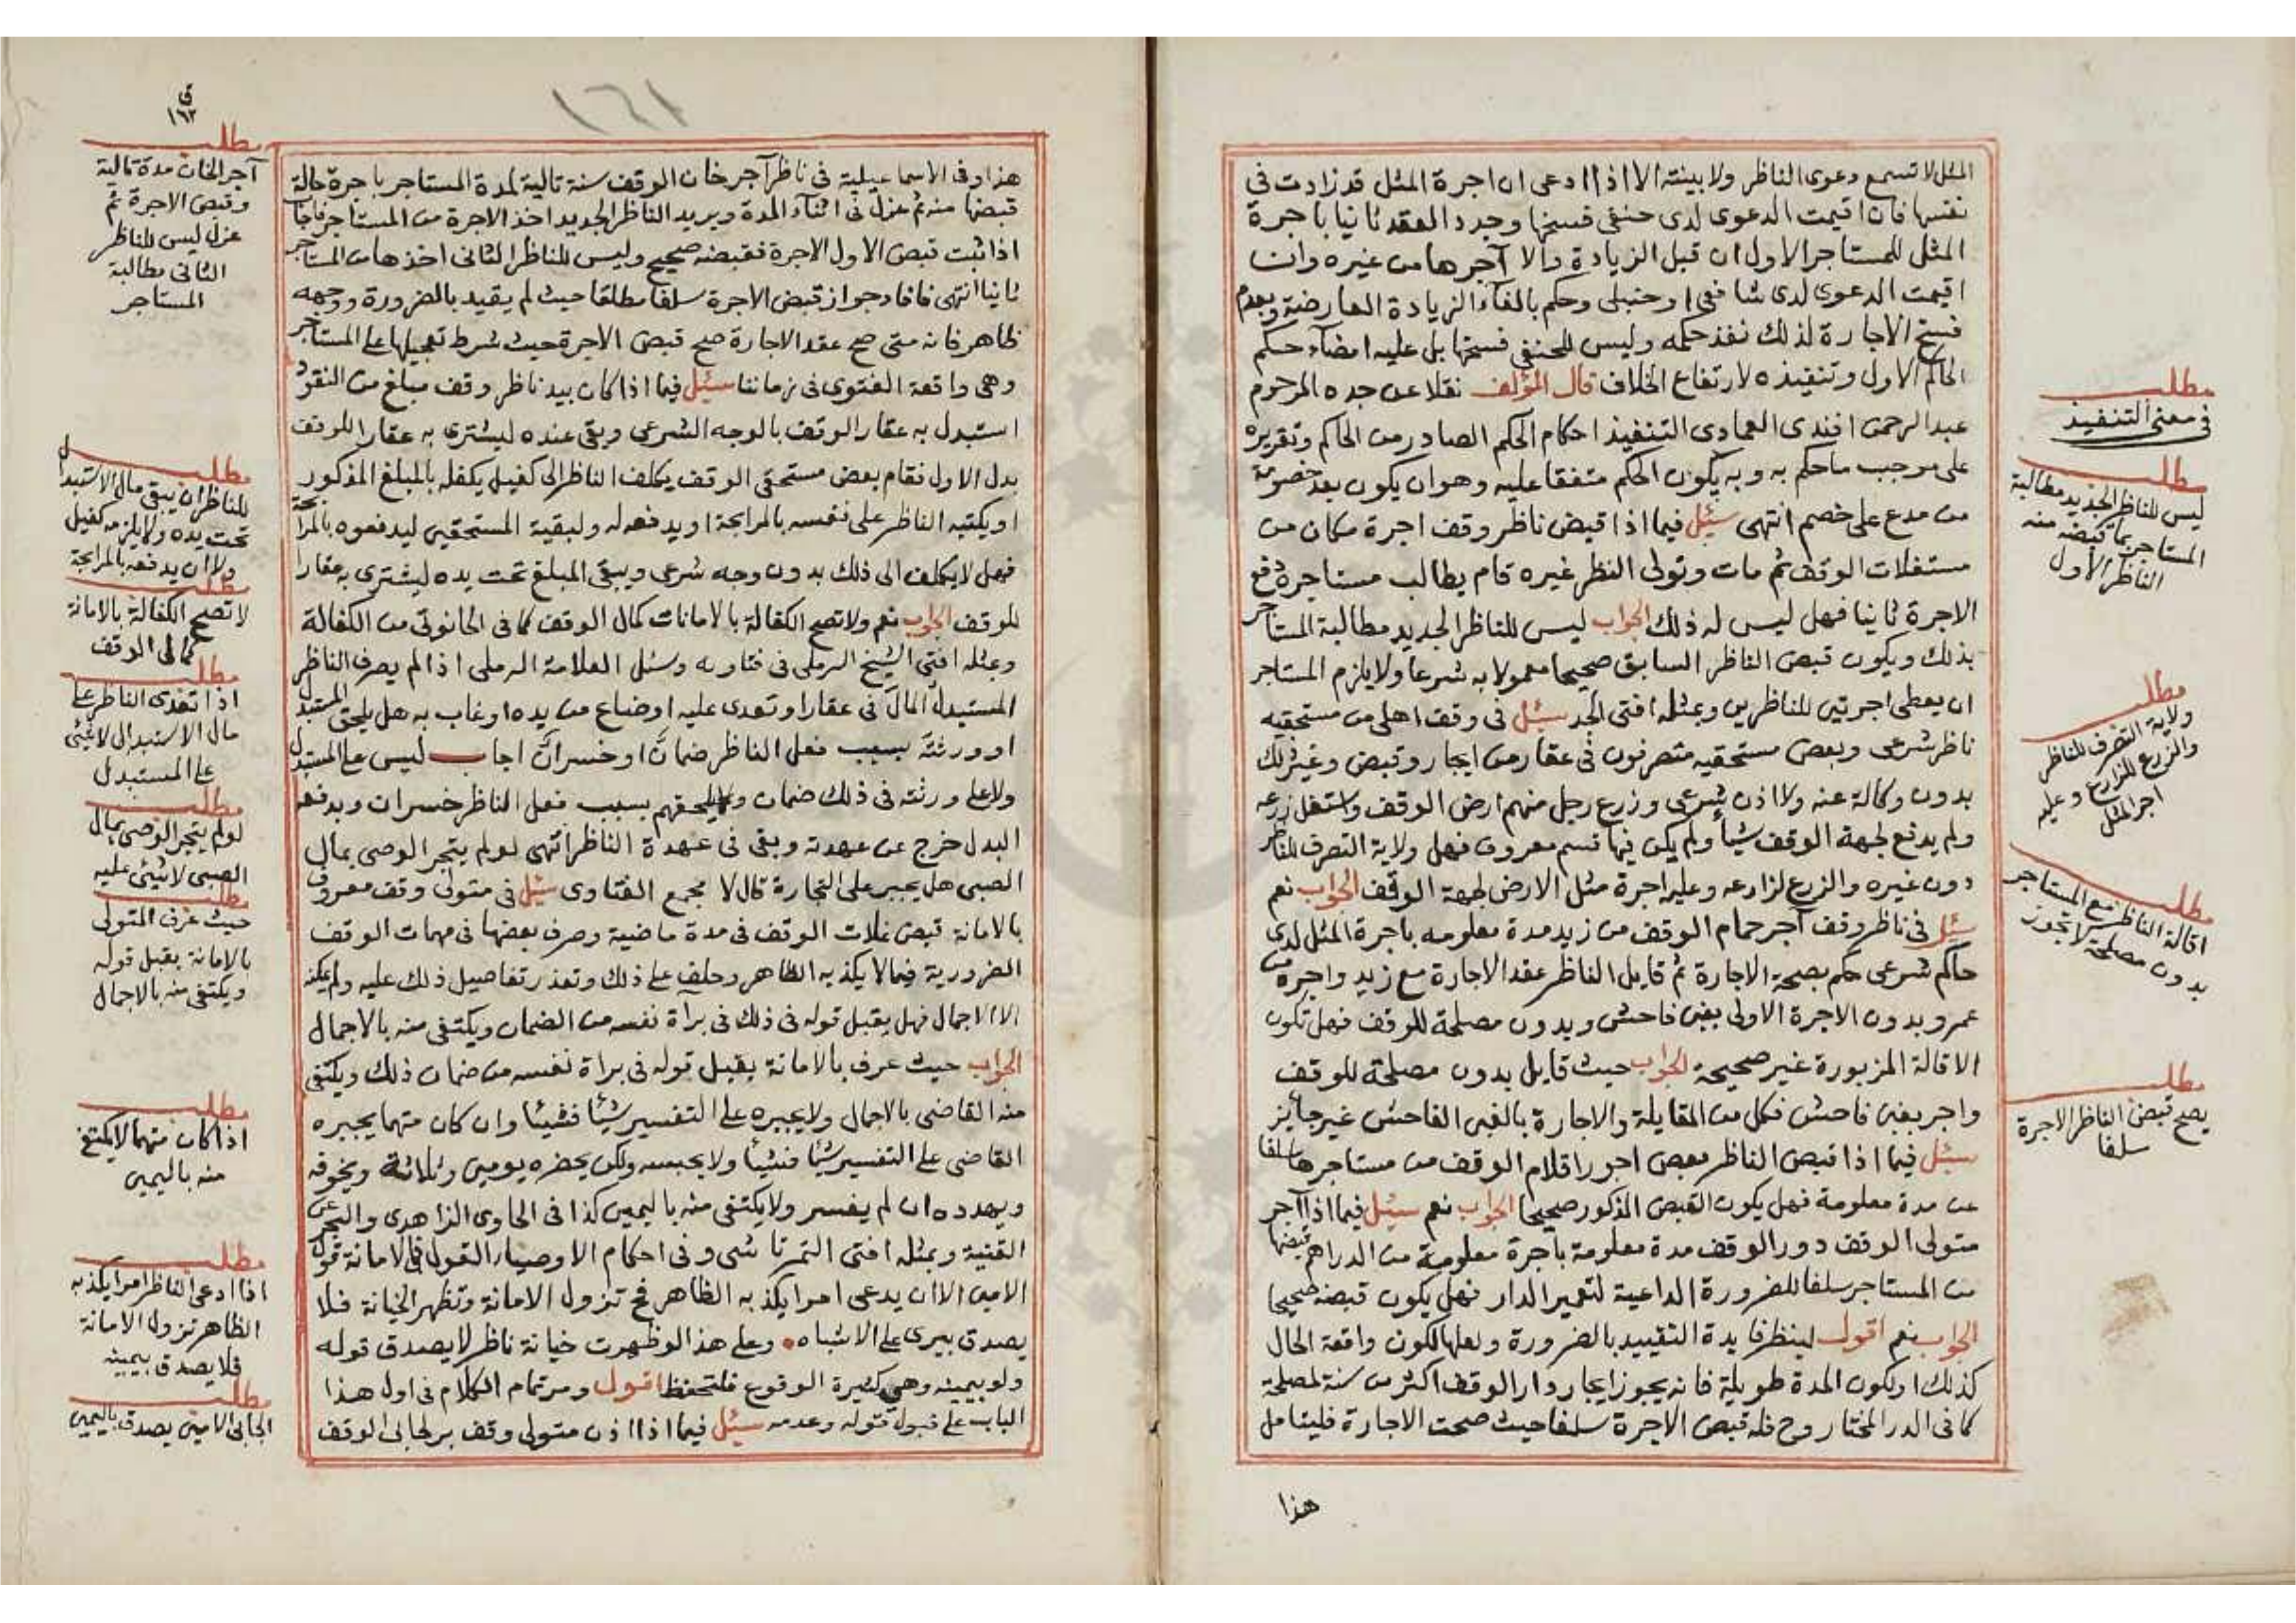 المثل لا تسمع دعوى الناظر ولا بينته الا اذا ادعى ان اجرة المثل قد زادت في
نفسها فان اقيمت الدعوى لدى حنفي فسخها وجدد العقد ثانيا باجرة
المثل للمستاجر الاول ان قبل الزيادة والا آجرها من غيره وان
اقيمت الدعوى لدى شافعي او حنبلي وحكم بالغاء الزيادة العارضة وبعدم
فسخ الاجارة لذلك نفذ حكمه وليس للحنفي فسخها بل عليه امضاء حكم
الحاكم الاول وتنفيذه لارتفاع الخلاف قال المؤلف نقلا عن جده المرحوم
عبد الرحمن افندى العمادى التنفيذ احكام الحكم الصادر من الحاكم وتقريره
على موجب ما حكم به وبه يكون الحكم متفقا عليه وهو ان يكون بعد خصومة
من مدع على خصم انتهى سئل فيما اذا قبض ناظر وقف اجرة مكان من
مستغلات الوقف ثم مات وتولى النظر غيره قام يطالب مستاجره دفع
الاجرة ثانيا فهل ليس له ذلك الجواب ليس للناظر الجديد مطالبة المستاجر
بذلك ويكون قبض الناظر السابق صحيحا معمولا به شرعا ولا يلزم المستاجر
ان يعطى اجرتين للناظرين وبمثله افتى الجد سئل في وقف اهلى من مستحقيه
ناظر شرعى وبعض مستحقيه متصرفون في عقار من ايجار وقبض وغير ذلك
بدون وكالة عنه ولا اذن شرعى وزرع رجل منهم ارض الوقف واستغل زرعه
ولم يدفع لجهة الوقف شيأ ولم يكن فيها قسم معروف فهل ولاية التصرف للناظر
دون غيره والزرع لزارعه وعليه اجرة مثل الارض لجهة الوقف الجواب نعم
سئل في ناظر وقف آجر حمام الوقف من زيد مدة معلومه باجرة المثل لدى
حاكم شرعى حكم بصحة الاجارة ثم قايل الناظر عقد الاجارة مع زيد واجره من
عمرو بدون الاجرة الاولى بغبن فاحش وبدون مصلحة للوقف فهل تكون
الاقالة المزبورة غير صحيحة الجواب حيث قايل بدون مصلحة للوقف
واجر بغبن فاحش فكل من المقايلة والاجارة بالغبن الفاحش غير جائز
سئل فيما اذا قبض الناظر بعض اجور اقلام الوقف من مستاجرها سلفا
عن مدة معلومة فهل يكون القبض المذكور صحيحا الجواب نعم سئل فيما اذا آجر
متولى الوقف دور الوقف مدة معلومة باجرة معلومة من الدراهم قبضها
من المستاجر سلفا للضرورة الداعية لتعمير الدار فهل يكون قبضه صحيحا
الجواب نعم اقول لينظر فايدة التقييد بالضرورة ولعلها لكون واقعة الحال
كذلك او لكون المدة طويلة فانه يجوز ايجار دار الوقف اكثر من سنة لمصلحة
كما في الدر المختار وح فله قبض الاجرة سلفا حيث صحت الاجارة فليتامل
هذا
مطلب
في معنى التنفيذ
مطلب
ليس للناظر الجديد مطالبة
المستاجر بما قبضه منه
الناظر الاول
مطلب
ولاية التصرف للناظر
والزرع للزارع وعليه
اجر المثل
مطلب
اقالة الناظر مع المستاجر
بدون مصلحة لا تجوز
مطلب
يصح قبض الناظر الاجرة
سلفا
١٦١
ق
١٦٢
هذا وفي الاسماعيلية في ناظر آجر خان الوقف سنة تالية لمدة المستاجر باجرة حالة
قبضها منه ثم عزل في اثناء المدة ويريد الناظر الجديد اخذ الاجرة من المستاجر فاجاب
اذا ثبت قبض الاول الاجرة فقبضه صحيح وليس للناظر الثاني اخذها من المستاجر
ثانيا انتهى فافاد جواز قبض الاجرة سلفا مطلقا حيث لم يقيد بالضرورة ووجهه
ظاهر فانه متى صح عقد الاجارة صح قبض الاجرة حيث شرط تعجيلها على المستاجر
وهي واقعة الفتوى في زماننا سئل فيما اذا كان بيد ناظر وقف مبلغ من النقود
استبدل به عقار الوقف بالوجه الشرعى وبقى عنده ليشترى به عقار للوقف
بدل الاول فقام بعض مستحقى الوقف يكلف الناظر الى كفيل يكفله بالمبلغ المذكور
او يكتبه الناظر على نفسه بالمرابحة او يدفعه له ولبقية المستحقين ليدفعوه بالمرابحة
فهل لا يكلف الى ذلك بدون وجه شرعى ويبقى المبلغ تحت يده ليشترى به عقارا
للوقف الجواب نعم ولا تصح الكفالة بالامانات كمال الوقف كما في الحانوتى من الكفالة
وبمثله افتى الشيخ الرملى في فتاويه وسئل العلامة الرملى اذا لم يصرف الناظر
المستبدل المال في عقار او تعدى عليه او ضاع من يده او غاب به هل يلحق المستبدل
او ورثته بسبب فعل الناظر ضمان او خسران اجاب ليس على المستبدل
ولا على ورثته في ذلك ضمان ولا يلحقهم بسبب فعل الناظر خسران وبدفعه
البدل خرج عن عهدته وبقى في عهدة الناظر انتهى لو لم يتجر الوصى بمال
الصبى هل يجبر على التجارة قال لا مجمع الفتاوى سئل في متولى وقف معروف
بالامانة قبض غلات الوقف في مدة ماضية وصرف بعضها في مهمات الوقف
الضرورية فيما لا يكذبه الظاهر وحلف على ذلك وتعذر تفاصيل ذلك عليه ولم يمكنه
الا الاجمال فهل يقبل قوله في ذلك في براة نفسه من الضمان ويكتفى منه بالاجمال
الجواب حيث عرف بالامانة يقبل قوله في براة نفسه من ضمان ذلك ويكتفى
منه القاضى بالاجمال ولا يجبره على التفسير شيئا فشيئا وان كان متهما يجبره
القاضى على التفسير شيئا فشيئا ولا يحبسه ولكن يحضره يومين وثلاثة ويخوفه
ويهدده ان لم يفسر ولا يكتفى منه باليمين كذا في الحاوى الزاهدى والبحر عن
القنية وبمثله افتى التمرتاشى وفي احكام الاوصياء القول في الامانة قول
الامين الا ان يدعى امرا يكذبه الظاهر فح تزول الامانة وتظهر الخيانة فلا
يصدق بيرى على الاشباه وعلى هذا لو ظهرت خيانة ناظر لا يصدق قوله
ولو بيمينه وهي كثيرة الوقوع فلتحفظ اقول ومر تمام الكلام في اول هذا
الباب على قبول قوله وعدمه سئل فيما اذا اذن متولى وقف بر لجابى الوقف
مطلب
آجر الخان مدة تالية
وقبض الاجرة ثم
عزل ليس للناظر
الثاني مطالبة
المستاجر
مطلب
للناظر ان يبقى مال الاستبدال
تحت يده ولا يلزمه كفيل
ولا ان يدفعه بالمرابحة
مطلب
لا تصح الكفالة بالامانة
كمال الوقف
مطلب
اذا تعدى الناظر على
مال الاستبدال لا شئ
على المستبدل
مطلب
لو لم يتجر الوصى بمال
الصبى لا شئ عليه
مطلب
حيث عرف المتولى
بالامانة يقبل قوله
ويكتفى منه بالاجمال
مطلب
اذا كان متهما لا يكتفى
منه باليمين
مطلب
اذا ادعى الناظر امرا يكذبه
الظاهر تزول الامانة
فلا يصدق بيمينه
مطلب
الجابى الامين يصدق باليمين